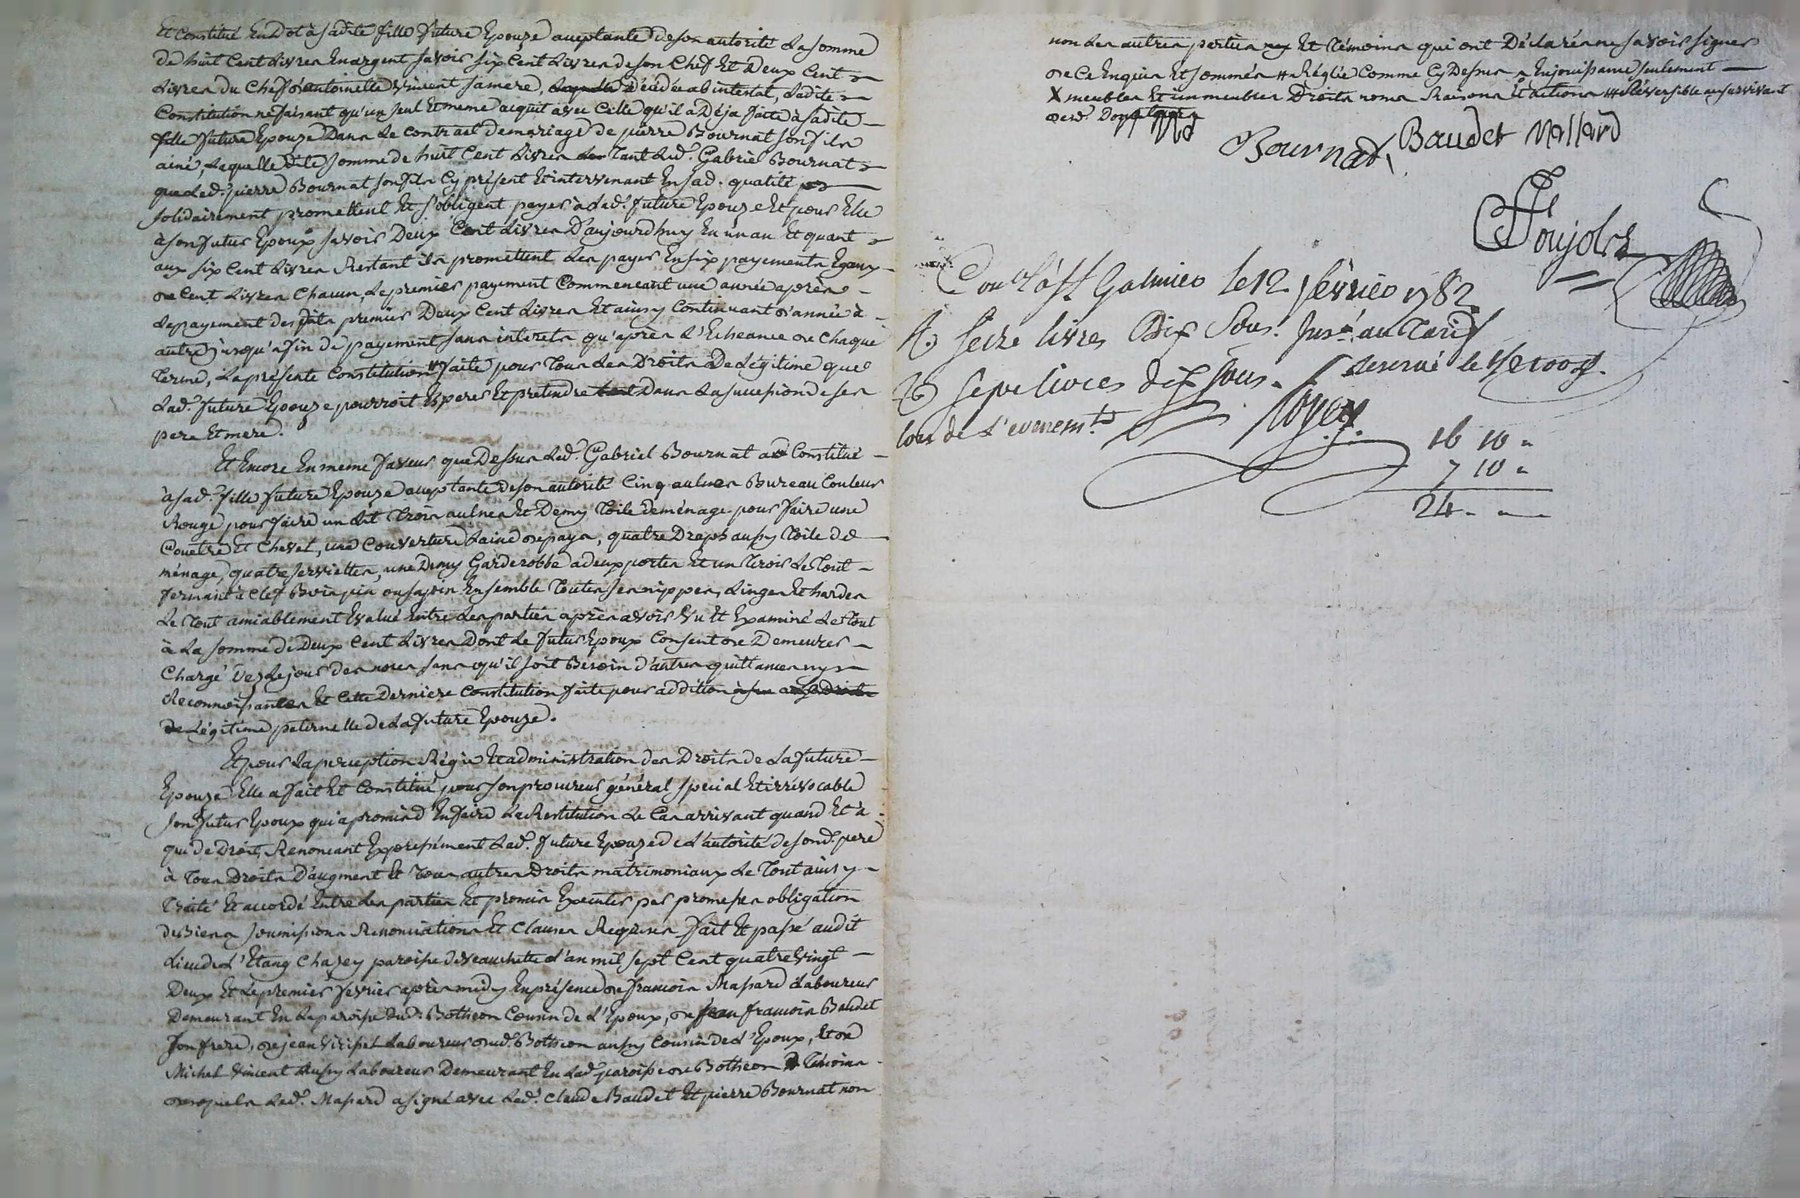 Et Constitué En Dot à sadite fille future Epouze acceptante de son autorité La somme
de huit Cent Livres En argent, savoir six Cent Livres de son Chef Et Deux Cent
Livres du Chef d'antoinette Vincent sa mère, Décédée ab intestat, Ladite
Constitution ne faisant qu'un seul Et meme acquit avec Celle qu'il a Déja faite à sadite
fille future Epouze Dans Le contrat de mariage de pierre Bournat son fils
ainé, Laquelle dite somme de huit Cent Livres Tant Led. Gabriel Bournat
que Led. pierre Bournat son fils Cy présent Et intervenant En sad. qualité
solidairement promettent Et s'obligent payer à Lad. future Epouze Et pour Elle
à son futur Epoux savoir Deux Cent Livres D'aujourd'huy En un an Et quant
aux six Cent Livres Restant ils promettent Les payer En six payements Egaux
de Cent Livres Chacun, Le premier payment Commencant une année après
Le payement desdits premiers Deux Cent Livres Et ainsy Continuant d'année à
autre jusqu'à fin de payement sans interets qu'après L'Echeance de Chaque
Terme, La présente Constitution faite pour Tous Les Droits De Légitime que
Lad. future Epouze pourroit Esperer Et pretendre Dans La succession de ses
pere Et mere.
Et Encore En meme faveur que Dessus Led. Gabriel Bournat a Constitué
à sad. fille future Epouze acceptante de son autorité Cinq aulnes Bureau Couleur
Rouge pour faire un Lit Trois aulnes Et Demy Toile de ménage pour faire une
Couetre Et Chevet, une Couverture Laine de pays, quatre Draps aussy Toile de
ménage, quatre serviettes, une Demy Garderobbe a deux portes Et un Tiroir Le Tout
fermant à Clef Bois pin ou sapin Ensemble Toutes ses nippes, Linges Et hardes
Le Tout amiablement Evalué Entre Les parties après avoir Vu Et Examiné Le Tout
à La somme de Deux Cent Livres Dont Le futur Epoux Consent de Demeurer
Chargé Des Le jour des noces sans qu'il soit Besoin d'autres quittances ny
Reconnoissances Et Cette Derniere Constitution faite pour addition
de Légitime paternelle de La future Epouze.
Et pour La perception Régie Et administration des Droits de La future
Epouze Elle a fait Et Constitué pour son procureur général spécial Et irrévocable
son futur Epoux qui a promis d'En faire La Restitution Le Cas arrivant quand Et à
qui de Droit, Renoncant Expressément Lad. future Epouze de L'autorité de sond. pere
à Tous Droits D'augment Et Tous autres Droits matrimoniaux Le Tout ainsy
Traité Et accordé Entre Les parties Et promis Executer par promesses obligation
de Biens soumissions Renonciations Et Clauses Requises fait Et passé audit
Lieu de L'Etang Chazey paroisse de Veauchette L'an mil sept Cent quatre vingt
Deux Et Le premier fevrier après midy En présence de francois Massard Laboureur
Demeurant En La paroisse dud. Botheon Cousin de L'Epoux, de francois Baudet
son frere, de jean Laboureur dud. Botheon aussy Cousin de L'Epoux, Et de
Michel Vincent aussy Laboureur Demeurant En Lad. paroisse de Botheon Témoins
desquels Led. Massard a signé avec Led. Claude Baudet Et pierre Bournat non
non Les autres parties Et Témoins qui ont Déclaré ne savoir signer
de Ce Enquis Et sommés Réglée Comme Cy Dessus En jouissance seulement
X meubles Et immeubles Droits noms Raisons Et actions Réversible au survivant
Bournat Baudet Massard
Poujolz
Con. à St Galmier le 12 février 1782
R. seize livres Dix sous. Ins. au Tarif
R. sept livres dix sous.
24
16 10
7 10
24